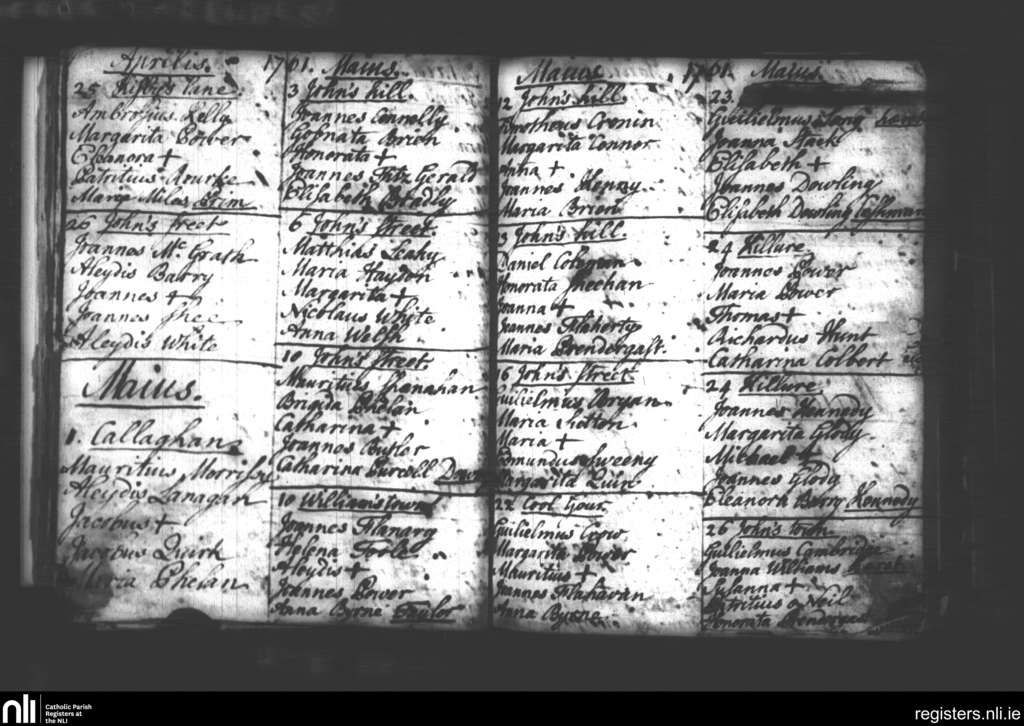 Aprilis. 1761.
25
Ambrosius Kelly
Margarita Power
Eleanora +
Patritius Rourke
Maria Miles
26 John's street
Joannes Mc. Grath
Aleydis Barry
Joannes +
Joannes Shee
Aleydis White
Maius.
1. Callaghans
Mauritius Morrissy
Aleydis Lanagan
Jacobus +
Jacobus Quirk
Maria Phelan
Maius.
3 John's hill.
Joannes Connolly
Gobnata Brien
Honorata +
Joannes Fitz Gerald
Elisabeth Bradly
6 John's street.
Matthias Leahy
Maria Haydon
Margarita +
Nicolaus White
Anna Welsh
10 John's street.
Mauritius Shanahan
Brigida Phelan
Catharina +
Joannes Butler
Catharina Purcell
10 William'stown
Joannes Flanary
Helena Toole
Aleydis +
Joannes Power
Anna Byrne Taylor
Maius 1761.
12 John's hill.
Timotheus Cronin
Margarita Connor
Anna +
Joannes Henny
Maria Brien
13 John's hill.
Daniel Coleman
Honorata Sheehan
Joanna +
Joannes Flaherty
Maria Prendergast.
16 John's street
Guilielmus Bryan
Maria
Maria +
Edmundus Sweeny
Margarita Quin
22 Cool Gour.
Guilielmus Crow
Margarita Power
Mauritius +
Joannes Flahavan
Anna Byrne
Maius
23.
Guilielmus Lang
Joanna Stack
Elisabeth +
Joannes Dowling
Elisabeth Dowling Cashman
24 Killure
Joannes Power
Maria Power
Thomas +
Richardus Hunt
Catharina Colbert
24 Killure
Joannes Kennedy
Margarita Glody
Michael +
Joannes Glody
Eleanora Barry Kennedy
26 John's town
Guilielmus Cambridge
Joanna Williams
Susanna +
Patritius o Neil
Honorata
nli
Catholic Parish
Registers at
the NLI
registers.nli.ie